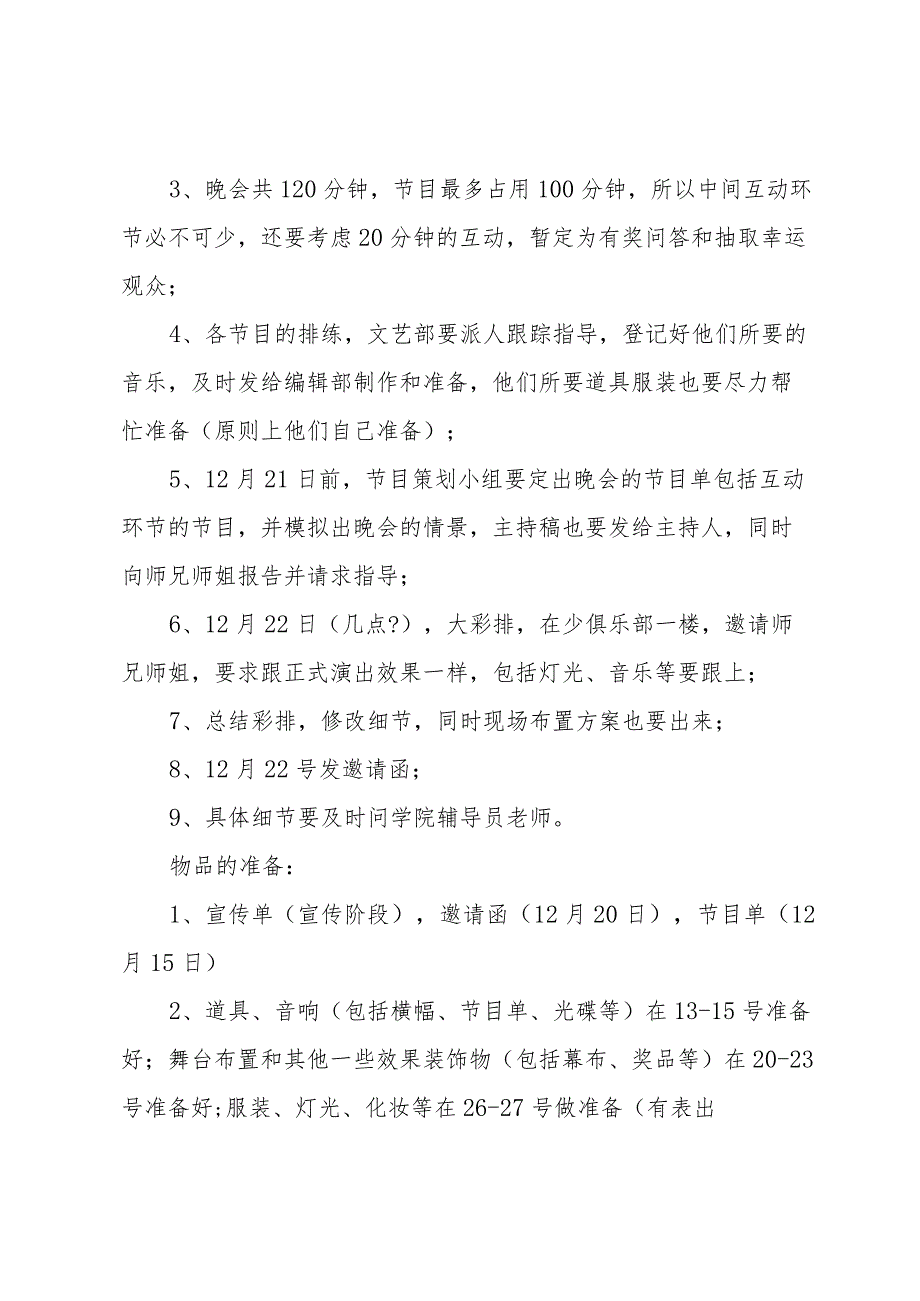 3、晚会共 120 分钟，节目最多占用 100 分钟，所以中间互动环
节必不可少，还要考虑 20 分钟的互动，暂定为有奖问答和抽取幸运
观众；
4、各节目的排练，文艺部要派人跟踪指导，登记好他们所要的
音乐，及时发给编辑部制作和准备，他们所要道具服装也要尽力帮
忙准备（原则上他们自己准备）；
5、12 月 21 日前，节目策划小组要定出晚会的节目单包括互动
环节的节目，并模拟出晚会的情景，主持稿也要发给主持人，同时
向师兄师姐报告并请求指导；
6、12 月 22 日（几点?），大彩排，在少俱乐部一楼，邀请师
兄师姐，要求跟正式演出效果一样，包括灯光、音乐等要跟上；
7、总结彩排，修改细节，同时现场布置方案也要出来；
8、12 月 22 号发邀请函；
9、具体细节要及时问学院辅导员老师。
物品的准备：
1、宣传单（宣传阶段），邀请函（12 月 20 日），节目单（12
月 15 日）
2、道具、音响（包括横幅、节目单、光碟等）在 13-15 号准备
好；舞台布置和其他一些效果装饰物（包括幕布、奖品等）在 20-23
号准备好;服装、灯光、化妆等在 26-27 号做准备（有表出